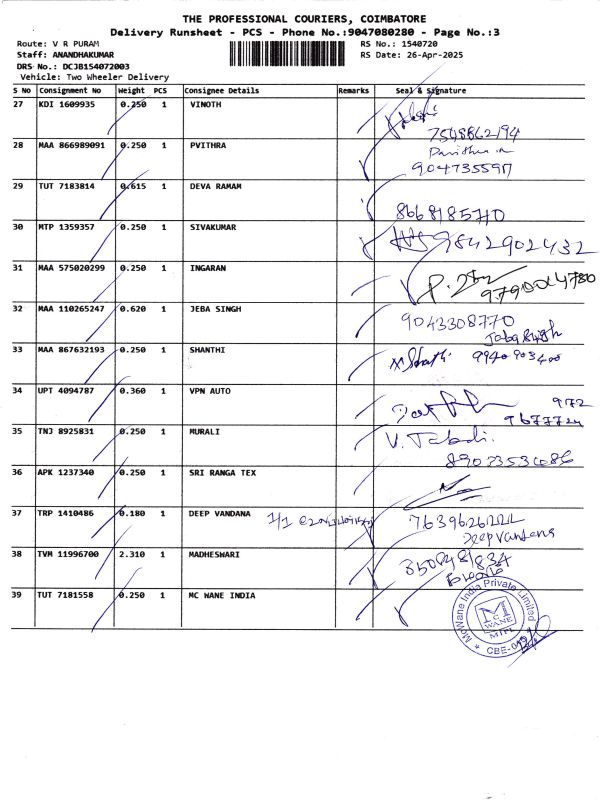 THE PROFESSIONAL COURIERS, COIMBATORE
Delivery Runsheet - PCS - Phone No.:9047080280 - Page No.:3
Route: V R PURAM RS No.: 1540720
Staff: ANANDHAKUMAR RS Date: 26-Apr-2025
DRS No.: DCJB154072003
Vehicle: Two Wheeler Delivery
S No Consignment No Weight PCS Consignee Details Remarks Seal & Signature
27 KDI 1609935 0.250 1 VINOTH
7548862194
28 MAA 866989091 0.250 1 PVITHRA
9047355911
29 TUT 7183814 0.615 1 DEVA RAMAM
8668185710
30 MTP 1359357 0.250 1 SIVAKUMAR 9842902432
31 MAA 575020299 0.250 1 INGARAN
32 MAA 110265247 0.620 1 JEBA SINGH
9043308770
33 MAA 867632193 0.250 1 SHANTHI 9940903400
34 UPT 4094787 0.360 1 VPN AUTO 972
35 TNJ 8925831 0.250 1 MURALI
36 APK 1237340 0.250 1 SRI RANGA TEX
37 TRP 1410486 0.180 1 DEEP VANDANA 1/1
Deepvandana
38 TVM 11996700 2.310 1 MADHESWARI
39 TUT 7181558 0.250 1 MC WANE INDIA
McWane India Private Limited
MC
WANE
MIPL